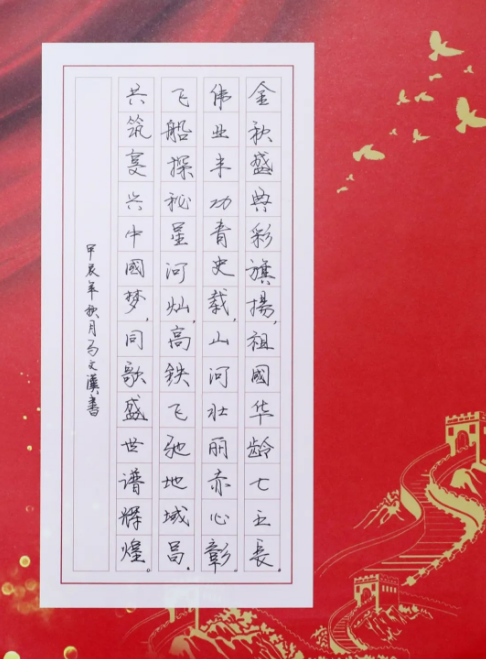 金秋盛典彩旗揚,祖國华龄七五長,
伟业丰功青史载,山河壮丽赤心彰,
飞船探秘星河灿,高鉄飞驰地域昌,
共筑复兴中國梦,同歌盛世谱辉煌。
甲辰年秋月马文漢書